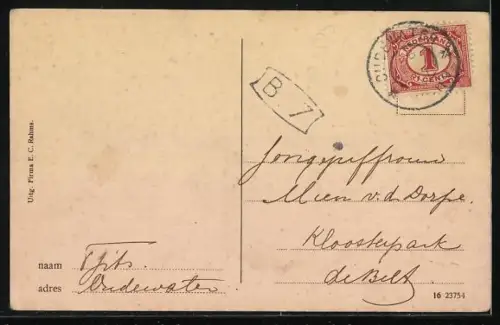 Uitg. Firma E. C. Rahms.
NEDERLAND
1
CENT
OUDEWATER
B. 7
Jongejuffrouw
Mien v.d. Dorpe.
Kloosterpark
de Bilt.
naam Frits.
adres Oudewater
16 23754